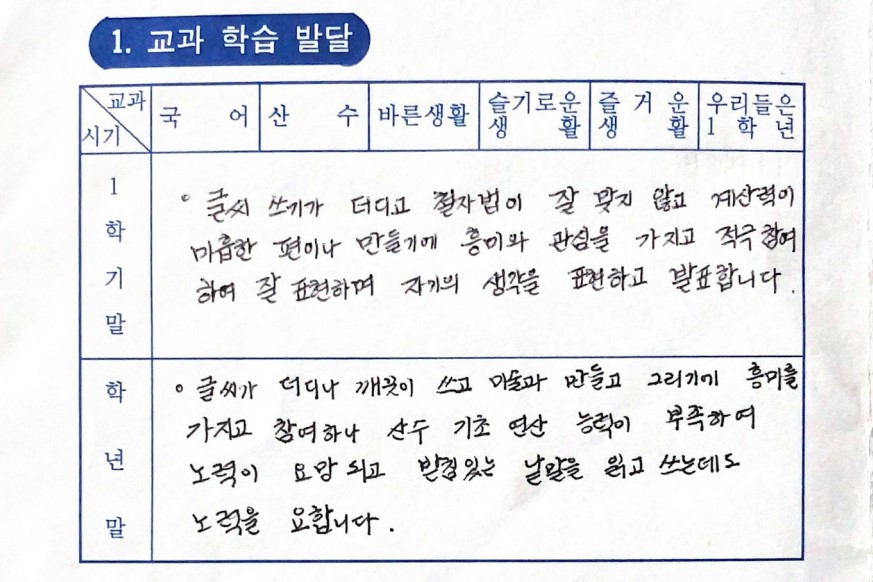 1. 교과 학습 발달
교과
시기
국 어
산 수
바른생활
슬기로운
생 활
즐 거 운
생 활
우리들은
1 학 년
1
학
기
말
◦ 글씨 쓰기가 더디고 철자법이 잘 맞지 않고 계산력이
미흡한 편이나 만들기에 흥미와 관심을 가지고 적극 참여
하여 잘 표현하며 자기의 생각을 표현하고 발표합니다.
학
년
말
◦ 글씨가 더디나 깨끗이 쓰고 미술과 만들고 그리기에 흥미를
가지고 참여하나 산수 기초 연산 능력이 부족하여
노력이 요망 되고 받침있는 낱말을 읽고 쓰는데도
노력을 요합니다.